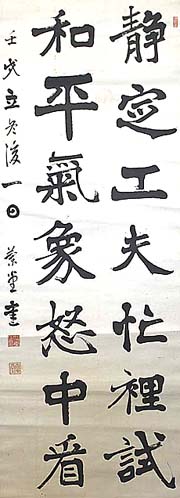 靜定工夫忙裡試
和平氣象怒中看
壬戌立冬後一日